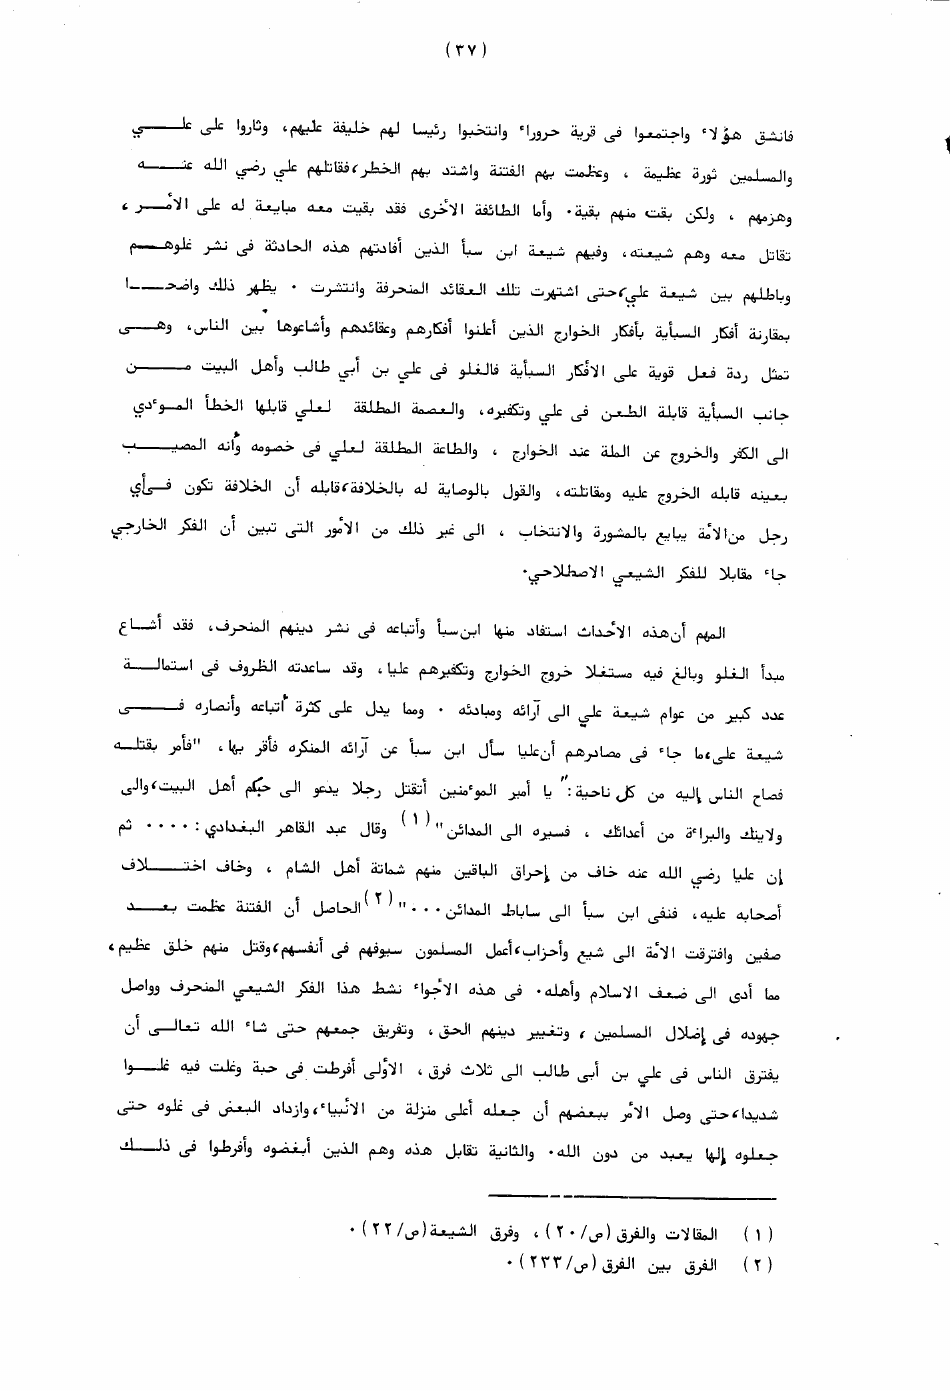 (٣٧)
فانشق هؤلاء واجتمعوا فى قرية حروراء وانتخبوا رئيسا لهم خليفة عليهم، وثاروا على علي
والمسلمين ثورة عظيمة ، وعظمت بهم الفتنة واشتد بهم الخطر، فقاتلهم علي رضي الله عنه
وهزمهم ، ولكن بقت منهم بقية. وأما الطائفة الأخرى فقد بقيت معه مبايعة له على الأمر ،
تقاتل معه وهم شيعته، وفيهم شيعة ابن سبأ الذين أفادتهم هذه الحادثة فى نشر غلوهم
وباطلهم بين شيعة علي، حتى اشتهرت تلك العقائد المنحرفة وانتشرت . يظهر ذلك واضحا
بمقارنة أفكار السبأية بأفكار الخوارج الذين أعلنوا أفكارهم وعقائدهم وأشاعوها بين الناس، وهى
تمثل ردة فعل قوية على الأفكار السبأية فالغلو فى علي بن أبي طالب وأهل البيت من
جانب السبأية قابلة الطعن فى علي وتكفيره، والعصمة المطلقة لعلي قابلها الخطأ المؤدي
الى الكفر والخروج عن الملة عند الخوارج ، والطاعة المطلقة لعلي فى خصومه وأنه المصيب
بعينه قابله الخروج عليه ومقاتلته، والقول بالوصاية له بالخلافة، قابله أن الخلافة تكون فى أي
رجل من الأمة يبايع بالمشورة والانتخاب ، الى غير ذلك من الأمور التى تبين أن الفكر الخارجي
جاء مقابلا للفكر الشيعي الاصطلاحي.
المهم أن هذه الأحداث استفاد منها ابن سبأ وأتباعه فى نشر دينهم المنحرف، فقد أشاع
مبدأ الغلو وبالغ فيه مستغلا خروج الخوارج وتكفيرهم عليا، وقد ساعدته الظروف فى استمالة
عدد كبير من عوام شيعة علي الى آرائه ومبادئه . ومما يدل على كثرة أتباعه وأنصاره فى
شيعة على، ما جاء فى مصادرهم أن عليا سأل ابن سبأ عن آرائه المنكره فأقر بها، "فأمر بقتله
فصاح الناس إليه من كل ناحية: "يا أمير المؤمنين أتقتل رجلا يدعو الى حبكم أهل البيت، والى
ولايتك والبراءة من أعدائك ، فسيره الى المدائن" (١) وقال عبد القاهر البغدادي: .... ثم
إن عليا رضي الله عنه خاف من إحراق الباقين منهم شماتة أهل الشام ، وخاف اختلاف
أصحابه عليه، فنفى ابن سبأ الى ساباط المدائن ..." (٢) الحاصل أن الفتنة عظمت بعد
صفين وافترقت الأمة الى شيع وأحزاب، أعمل المسلمون سيوفهم فى أنفسهم، وقتل منهم خلق عظيم،
مما أدى الى ضعف الاسلام وأهله. فى هذه الأجواء نشط هذا الفكر الشيعي المنحرف وواصل
جهوده فى إضلال المسلمين ، وتغيير دينهم الحق، وتفريق جمعهم حتى شاء الله تعالى أن
يفترق الناس فى علي بن أبى طالب الى ثلاث فرق، الأولى أفرطت فى حبة وغلت فيه غلوا
شديدا، حتى وصل الأمر ببعضهم أن جعله أعلى منزلة من الأنبياء، وازداد البعض فى غلوه حتى
جعلوه إلها يعبد من دون الله. والثانية تقابل هذه وهم الذين أبغضوه وأفرطوا فى ذلك
(١) المقالات والفرق (ص/٢٠)، وفرق الشيعة (ص/٢٢).
(٢) الفرق بين الفرق (ص/٢٣٣).